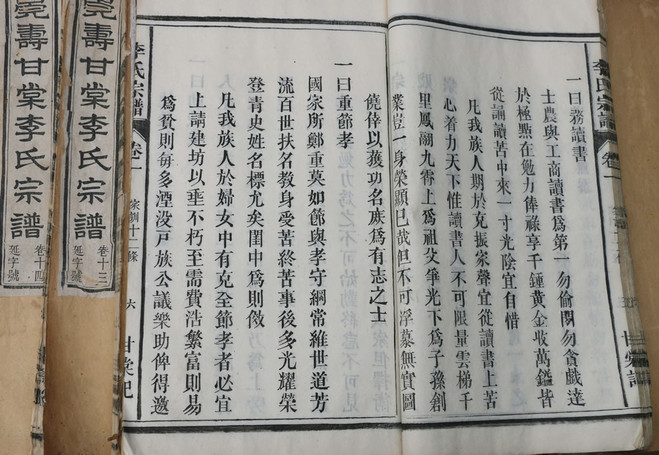 李氏宗譜
卷一
甘棠記
一曰務讀書
士農與工商讀書爲第一勿偷閑勿貪戲達
於極點在勉力俸祿享千鍾黃金收萬鎰皆
從誦讀苦中來一寸光陰宜自惜
凡我族人期於克振家聲宜從讀書上苦
心着力天下惟讀書人不可限量雲梯千
里鳳湖九霄上爲祖父爭光下爲子孫創
業豈一身榮顯已哉但不可浮慕無實圖
僥倖以獲功名庶爲有志之士
一曰重節孝
國家所鄭重莫如節與孝守綱常維世道芳
流百世扶名教身受苦終苦事後多光耀榮
登青史姓名標尤矣閨中爲則傚
凡我族人於婦女中有克全節孝者必宜
上請建坊以垂不朽至需費浩繁富則易
爲貧則每多湮没戸族公議樂助俾得邀
李氏宗譜
卷一
家訓十二條
六
甘棠記
壽甘棠李氏宗譜
卷十三
延字號
壽甘棠李氏宗譜
卷十四
延字號